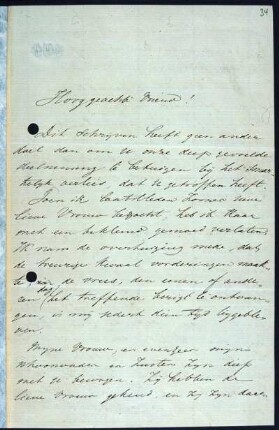 34
Hooggeachte Vriend!
Dit schrijven heeft geen ander
doel dan om U onze diep gevoelde
deelneming te betuigen bij het
verlies, dat U getroffen heeft.
Toen ik laatstleden Uwe
lieve Vrouw bezocht, heb ik Haar
met een beklemd gemoed verlaten.
Ik nam de overtuiging mede, dat
de treurige kwaal vorderingen maak
te, de vrees, den eenen of ander
en dag het treffende berigt te ontvan
gen, is mij sedert dien tyd bygeble
ven.
Myne Vrouw, en evenzeer myne
Schoonvader en Zusters zyn diep
met U bewogen. Zij hebben de
lieve Vrouw gekend, en zij zyn daar